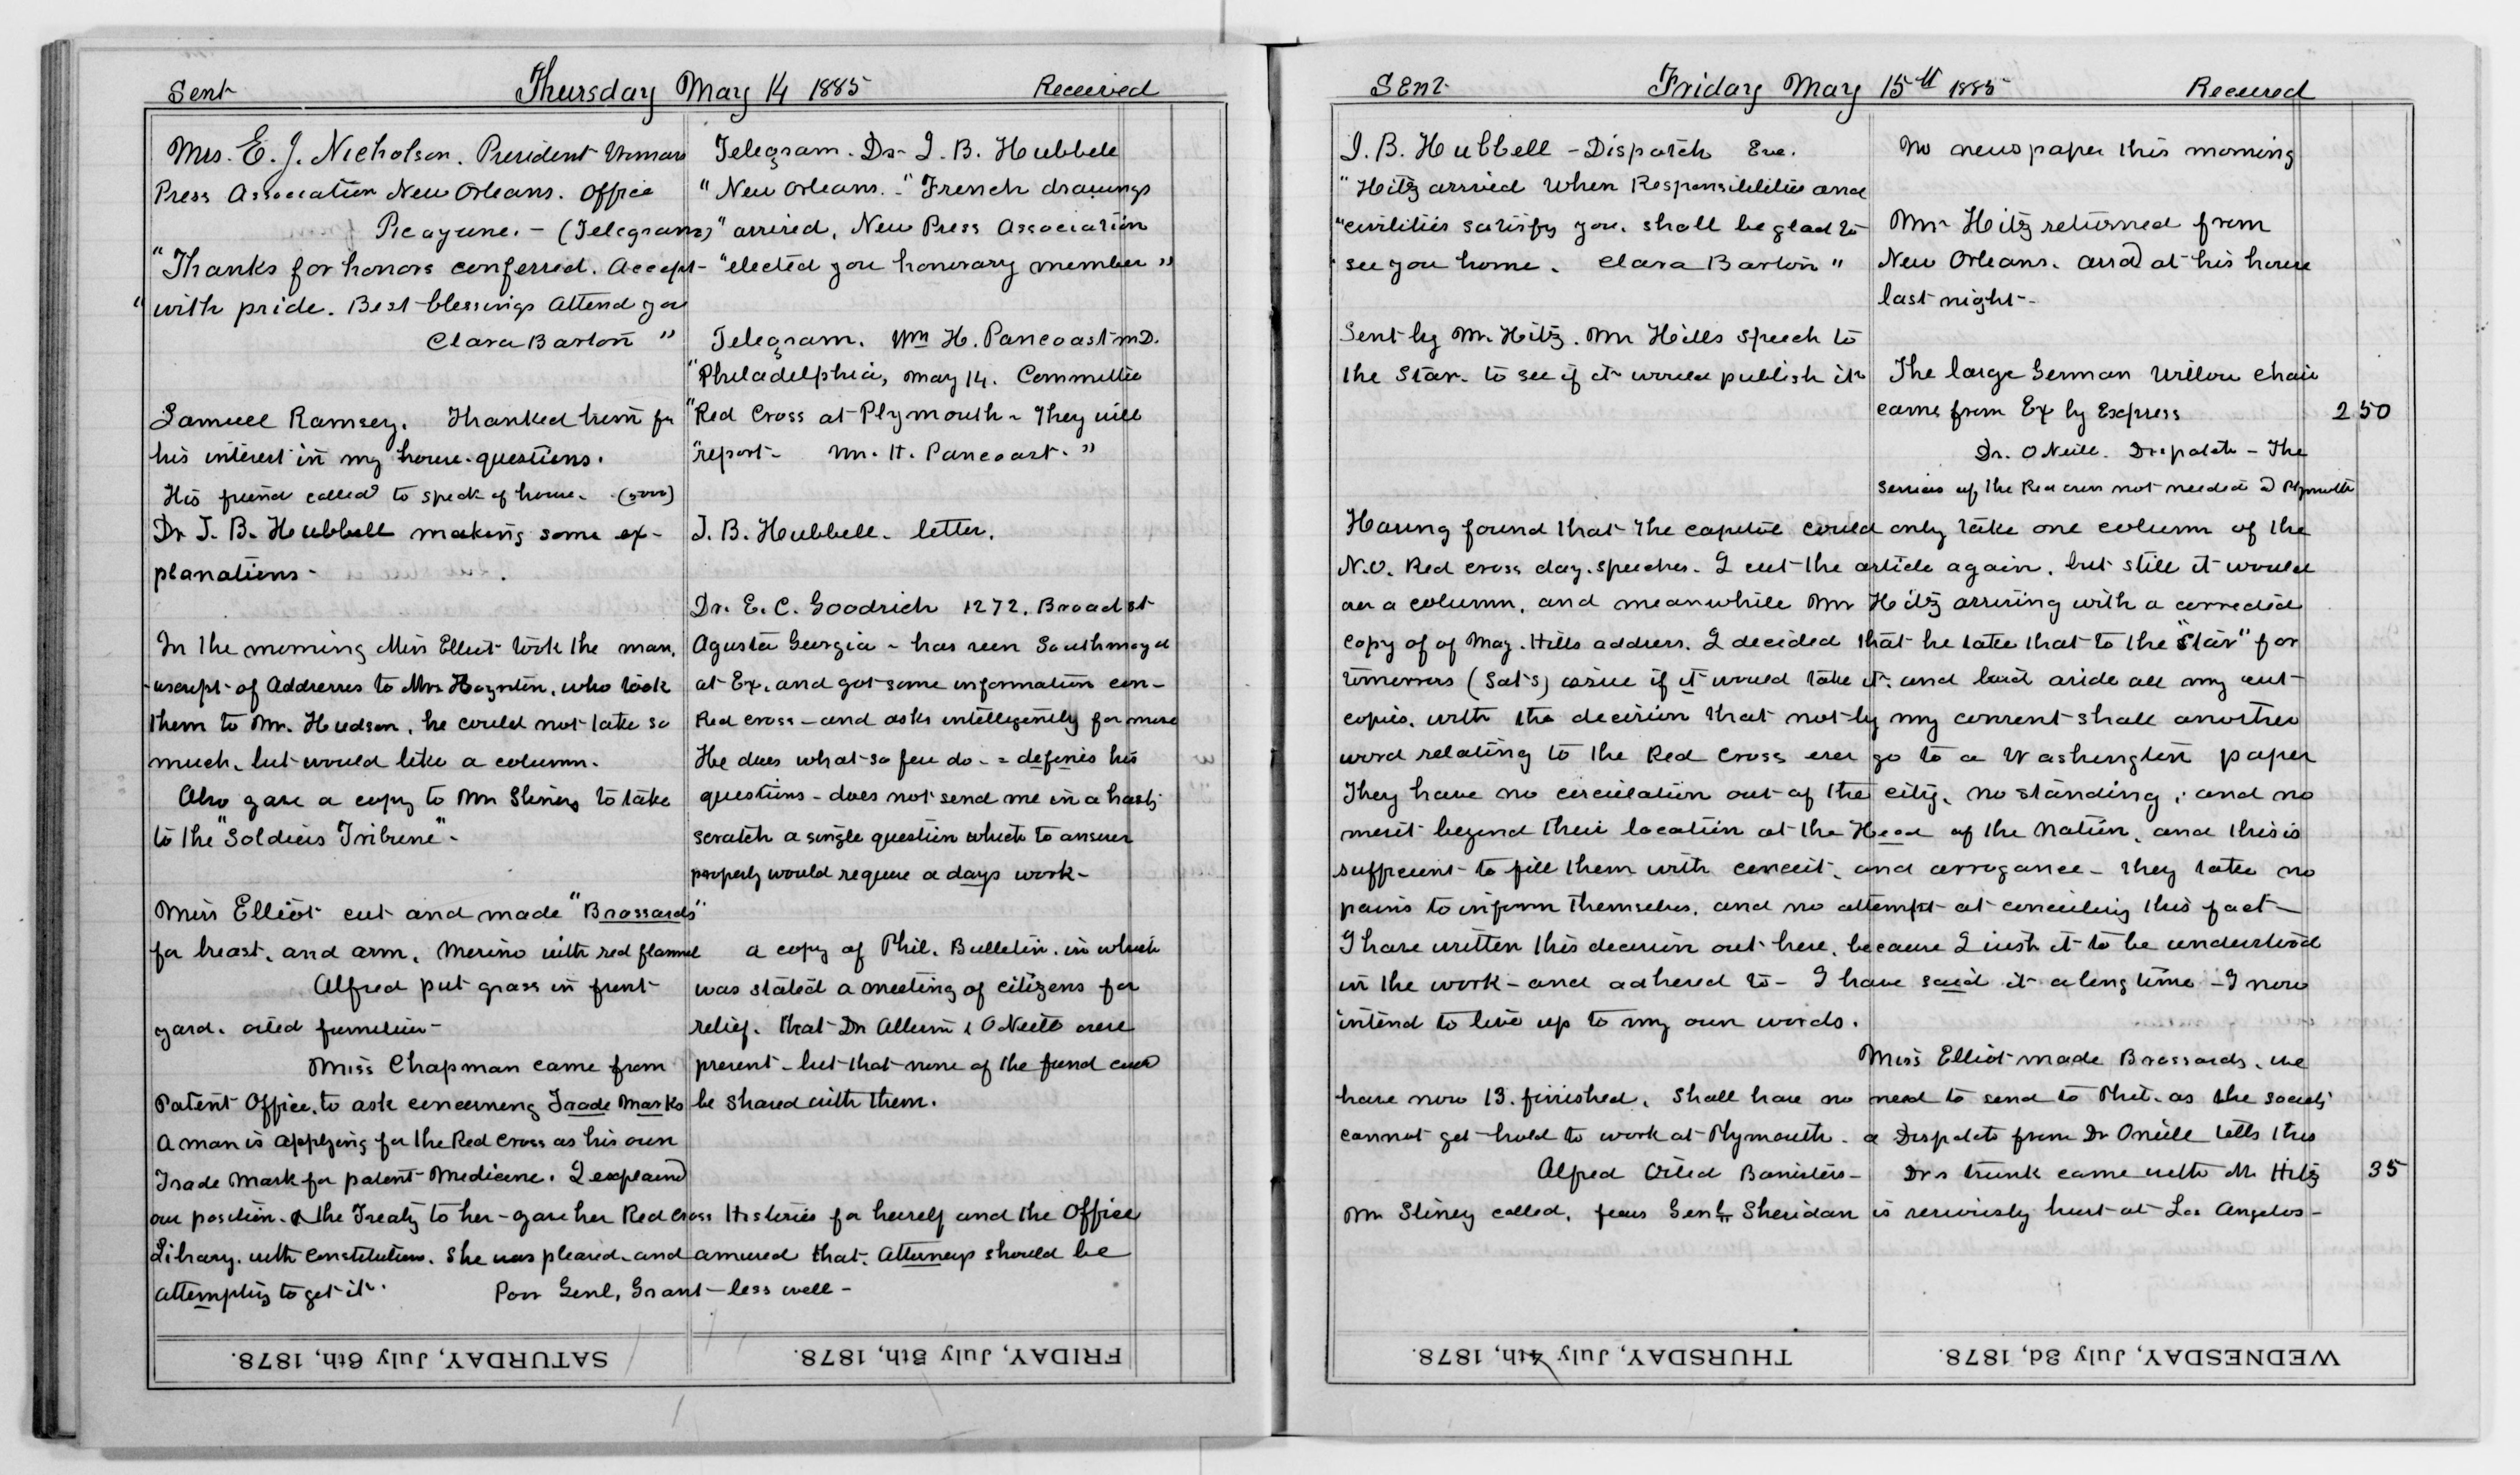 Sent Thursday May 14 1885 Received
Mrs. E. J. Nicholson. President Womans
Press Association New Orleans. Office
Picayune. - (Telegram)
"Thanks for honors conferred. Accept
"with pride. Best blessings attend you
Clara Barton "
Samuel Ramsey. Thanked him for
his interest in my house-questions.
His friend called to speak of house.
Dr J. B. Hubbell making some ex-
planations -
In the morning Miss Elliot took the man,
-uscript of Addresses to Mrs. Hoynton, who took
them to Mr. Hudson, he could not take so
much, but would like a column.
Also gave a copy to Mr Stiney to take
to the "Soldiers Tribune" -
Miss Elliot cut and made "Brassards"
for breast, and arm, Merino with red flannel
Alfred put grass in front
yard. oiled furniture -
Miss Chapman came from
Patent Office, to ask concerning Trade Marks
A man is applying for the Red Cross as his own
Trade Mark for patent Medicine. I explained
our position & the Treaty to her - gave her Red Cross Histories for herself and the Office
Library. with Constitution. She was pleased and amused that Attorneys should be
attempting to get it. Poor Genl, Grant - less well -
Telegram. Dr J. B. Hubbell
"New Orleans. - "French drawings
" arrived, New Press Association
"elected you honorary member "
Telegram. Wm H. Pancoast M.D.
"Philadelphia, May 14. Committee
"Red Cross at Plymouth - They will
"report - Wm. H. Pancoast. "
J. B. Hubbell. letter.
Dr. E. C. Goodrich 1272. Broad st
Agusta Georgia - has seen Southmayd
at Ex. and got some information con-
Red cross - and asks intelligently for more
He does what so few do - = defines his
questions - does not send me in a hasty
scratch a single question which to answer
properly would require a days work -
a copy of Phil. Bulletin. in which
was stated a meeting of citizens for
relief. that Dr Allum & O Neill were
present - but that none of the fund
be shared with them.
SATURDAY, July 6th, 1878. FRIDAY, July 5th, 1878.
Sent Friday May 15th 1885 Received
J. B. Hubbell - Dispatch Eve.
"Hitz arrived When Responsibilities and
"civilities satisfy you. shall be glad to
"see you home. Clara Barton "
Sent by Mr. Hitz. Mr Hills speech to
the Star. to see if it would publish it
No newspaper this morning
Mr Hitz returned from
New Orleans. arrd at his house
last night -
The large German Willow chair
came from Ex by Express 2 50
Dr. O Neill. Dispatch - The
services of the Red cross not needed @ Plymouth
Having found that the capitol could only take one column of the
N.O. Red cross day. speeches. I cut the article again, but still it would
a column, and meanwhile Mr Hitz arriving with a corrected
copy of of Maj. Hills address. I decided that he take that to the "Star" for
tomorrows (Sat's) issue if it would take it. and laid aside all my cut
copies. with the decision that not by my consent shall another
word relating to the Red Cross ever go to a Washington paper
They have no circulation out of the city. no standing, and no
merit beyond their location at the Head of the Nation, and this is
sufficient to fill them with conceit, and arrogance - They take no
pains to inform themselves. and no attempt at concealing this fact -
I have written this decision out here, because I wish it to be understood
in the work - and adhered to - I have said it a long time - I now
intend to live up to my own words.
Miss Elliot made Brassards. we
have now 13. finished. Shall have no need to send to Phil. as the society
cannot get hold to work at Plymouth. a Dispatch from Dr Oneill tells this
Alfred Oiled Banisters - Drs trunk came with Mr Hitz 35
Mr Stiney called. fears Genl Sheridan is seriously hurt at Los Angelos -
THURSDAY, July 4th, 1878. WEDNESDAY, July 3d, 1878.